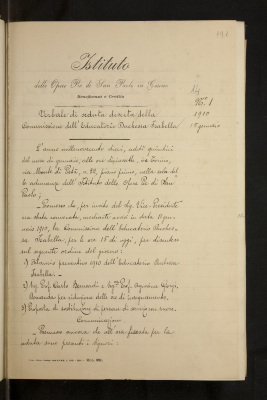 191
Istituto
delle Opere Pie di San Paolo in Torino
Beneficenza e Credito
Verbale di seduta decreta della
Commissione dell'Educatorio Duchessa Isabella
N. 1
1910
15 gennaio
L'anno millenovecento dieci, addì quindici
del mese di gennaio, alle ore diciassette, in Torino,
via Monte di Pietà, n. 32, piano primo, nella sala del
le adunanze dell'Istituto delle Opere Pie di San
Paolo;
Premesso che per invito del Sig. Vice-Presidente
era stata convocata, mediante avvisi in data 11 gen
naio 1910, la Commissione dell'Educatorio Duches
sa Isabella, per le ore 17 di oggi, per discutere
sul seguente ordine del giorno:
1) Bilancio preventivo 1910 dell'Educatorio Duchessa
Isabella.
2) Sig. Prof. Carlo Bernardi e Sig.ra Prof.
Domanda per riduzione delle ore di insegnamento.
3) Proposta di sostituzione di persona di servizio
Comunicazioni.
Premesso ancora che all'ora fissata per la
seduta sono presenti i signori: